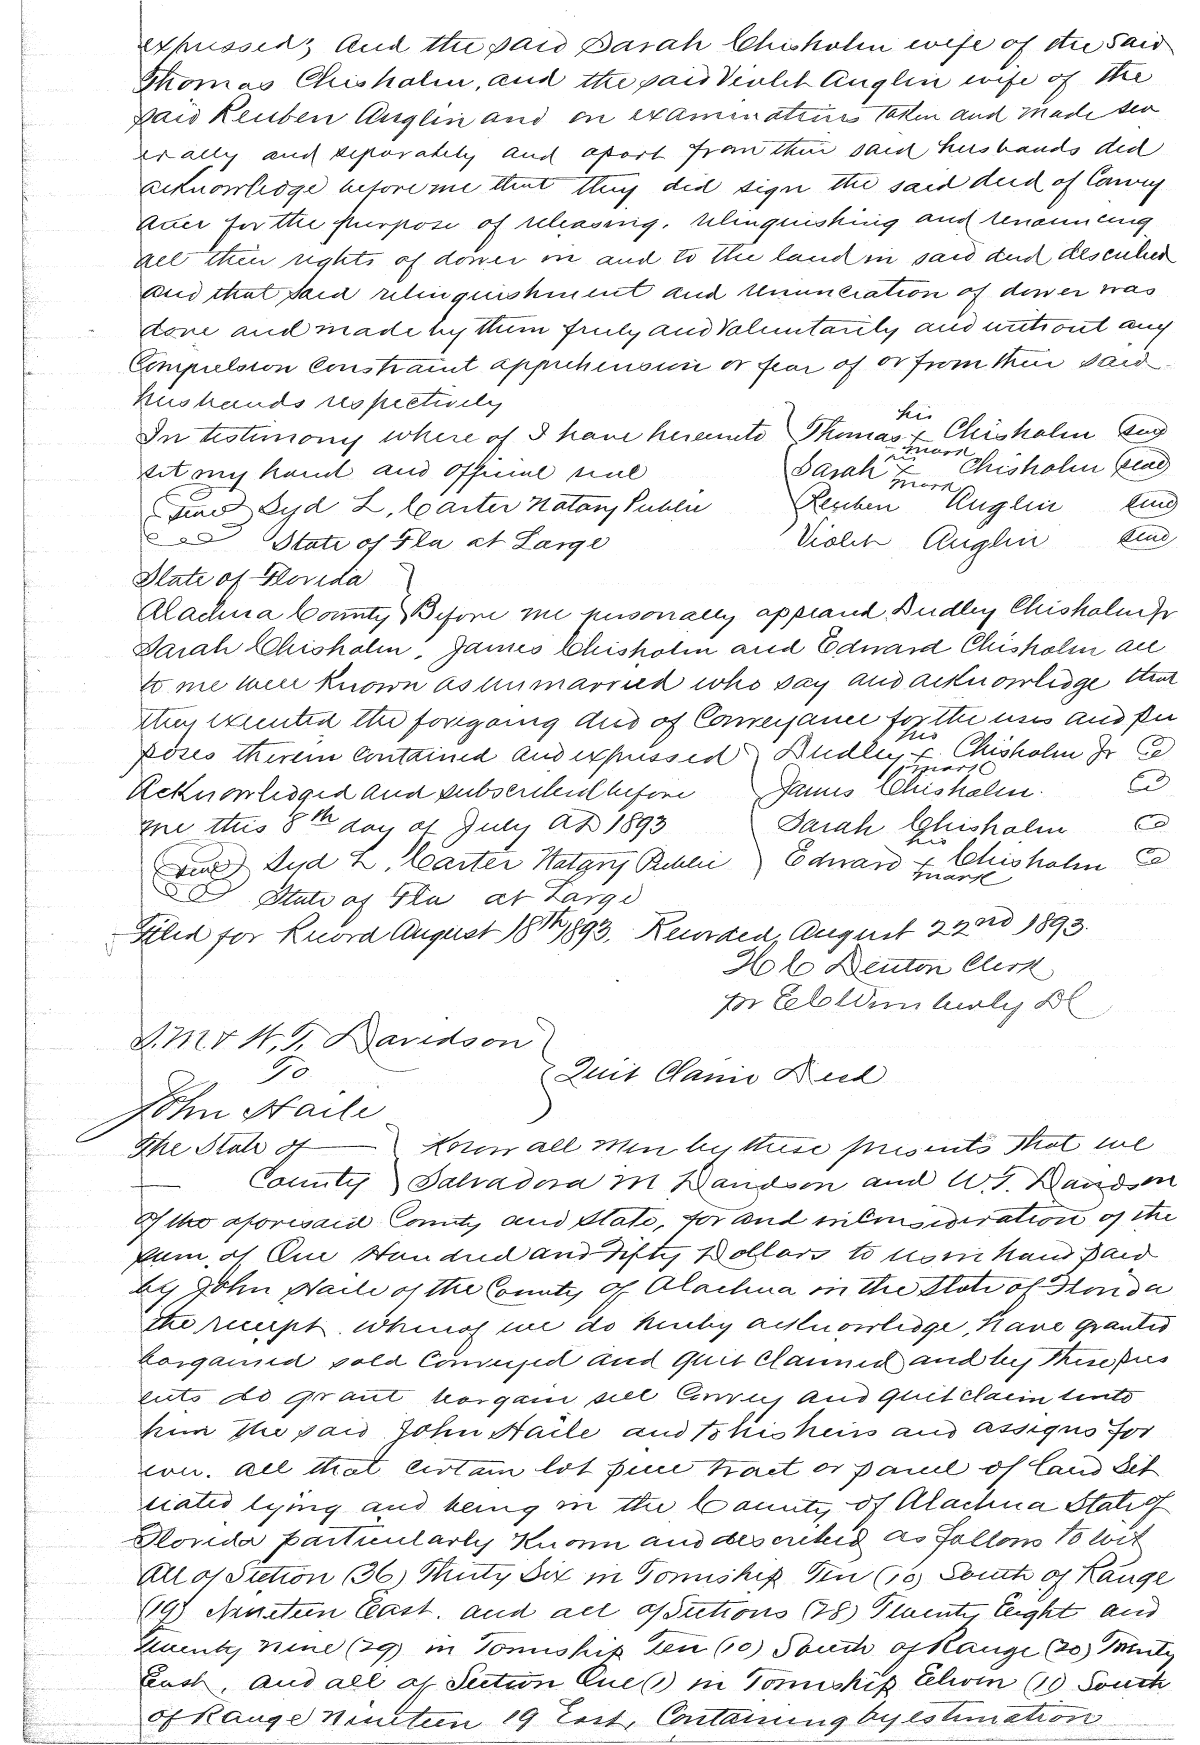 expressed; And the said Sarah Chisholm wife of the said
Thomas Chisholm, and the said Violet Anglin wife of the
said Reuben Anglin and on examinations taken and made sev
erally and seperately and apart from their said husbands did
acknowledge before me that they did sign the said deed of Convey
ance for the purpose of releasing, relinquishing and renouncing
all their rights of dower in and to the land in said deed described
and that said relinquishment and renunciation of dower was
done and made by them freely and voluntarily and without any
Compulsion Constraint apprehension or fear of or from their said
husbands respectively
In testimony where of I have hereunto } Thomas his x mark Chisholm (seal)
set my hand and official seal Sarah x mark Chisholm (seal)
(seal) Syd L, Carter Notary Public Reuben Anglin (seal)
State of Fla at Large Violet Anglin (seal)
State of Florida }
Alachua County } Before me personally appeard Dudley Chisholm Jr
Sarah Chisholm, James Chisholm and Edward Chisholm all
to me well known as unmarried who say and acknowledge that
they executed the foregoing deed of Conveyance for the uses and pur
poses therein contained and expressed } Dudley his x mark Chisholm Jr
Acknowledged and subscribed before James Chisholm.
me this 8th day of July AD 1893 Sarah Chisholm
(seal) Syd L, Carter Notary Public } Edward his x mark Chisholm
State of Fla at Large
Filed for Record August 18th 1893. Recorded, August 22nd 1893.
H C Denton Clerk
for E C Wimberly DC
S. M. & W. T. Davidson }
To } Quit Claim Deed
John Haile }
The State of — } Know all men by these presents That we
— County } Salvadora M Davidson and W. T. Davidson
of the aforesaid County and State, for and in Consideration of the
sum, of One Hundred and Fifty Dollars to us in hand paid
by John Haile of the County of Alachua in the State of Florida
the receipt whereof we do hereby acknowledge, have granted
bargained sold Conveyed and quit claimed and by these pres
ents do grant bargain sell Convey and quit claim unto
him the said John Haile and to his heirs and assigns for
ever. all that certain lot piece tract or parcel of land Sit
uated lying and being in the County of Alachua State of
Florida particularly Known and described as follows to wit
All of Section (36) Thirty Six in Township Ten (10) South of Range
(19) Nineteen East. and all of Sections (28) Twenty Eight and
Twenty nine (29) in Township Ten (10) South of Range (20) Twenty
East, and all of Section One (1) in Township Elevin (11) South
of Range Nineteen 19 East, Containing by estimation